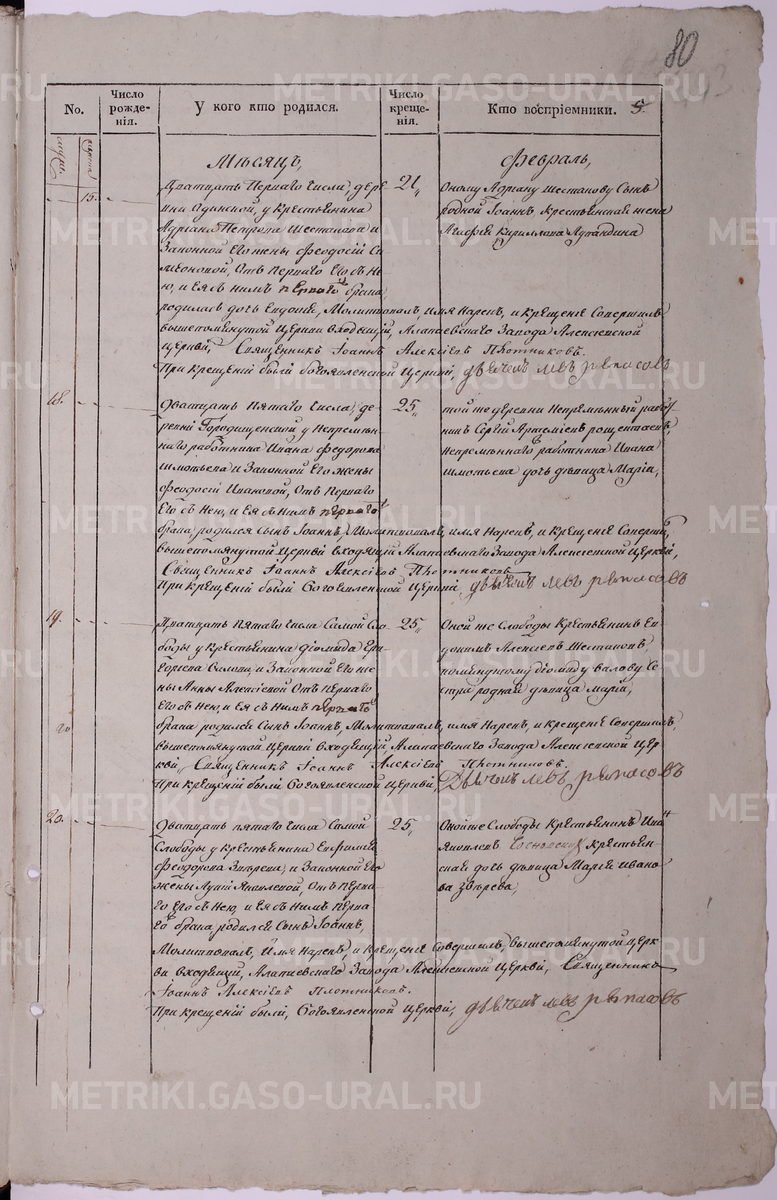 80
No.
Число рожденія.
У кого кто родился.
Число крещенія.
Кто воспріемники. 5.
Мѣсяцъ,
Февраль,
15.
Дватцать перваго числа, дере
вни Одинской, у крестьянина
Адріана Петрова Шестакова и
законной его жены Феодосіи Си
меоновой, отъ перваго его съ не
ю, и ея съ нимъ перваго брака,
родилась дочь Евдокія, молитвовалъ, имя нарекъ, и крещеніе совершилъ
вышепомянутой церкви входящій, Алапаевскаго завода Алексеевской
церкви, Священникъ Іоаннъ Алексіевъ Плотниковъ.
При крещеніи были Богоявленской церкви, дьячекъ Левъ
21
Оному Адріану Шестакову сынъ
родной Іоаннъ крестьянская жена
Агафія Кириллова
18.
Дватцать пятаго числа, де
ревни Городищенской у непремѣн
наго работника Ивана Федорова
Шмотьева и законной его жены
Феодосіи Ивановой, отъ перваго
его съ нею, и ея съ нимъ перваго
брака, родился сынъ Іоаннъ, молитвовалъ, имя нарекъ, и крещеніе соверши
вышепомянутой церкви входящій Алапаевскаго завода Алексеевской церкви,
Священникъ Іоаннъ Алексіевъ Плотниковъ.
При крещеніи были Богоявленской церкви, дьячекъ Левъ
25
той же деревни непремѣнный работ
никъ Сергій Артеміевъ
непремѣннаго работника Ивана
Шмотьева дочь дѣвица Марія,
19.
Дватцать пятаго числа самой сло
боды у крестьянина Діомида Гри
горьева и законной его же
ны Анны Алексіевой отъ перваго
его съ нею, и ея съ нимъ перваго
брака родился сынъ Іоаннъ, молитвовалъ, имя нарекъ, и крещеніе совершилъ,
вышепомянутой церкви входящій, Алапаевскаго завода Алексеевской цер
кви, Священникъ Іоаннъ Алексіевъ Плотниковъ.
При крещеніи были Богоявленской церкви, Дьячекъ Левъ
25
Оной же слободы крестьянинъ Ев
докимъ Алексеевъ Шестаковъ,
Діомиду се
стра родная дѣвица Марія,
20
20.
Дватцать пятаго числа самой
слободы у крестьянина Евфимія
Феодорова Звѣрева, и законной его
жены Яковлевой, отъ перва
го его съ нею, и ея съ нимъ перва
го брака родился сынъ Іоаннъ,
молитвовалъ, имя нарекъ, и крещеніе совершилъ, вышепомянутой церк
ви входящій, Алапаевскаго завода Алексеевской церкви, Священникъ
Іоаннъ Алексіевъ Плотниковъ.
При крещеніи были, Богоявленской церкви, дьячекъ Левъ
25
Оной же слободы крестьянинъ
Яковлевъ крестьян
ская дочь дѣвица Марія Ивано
ва Звѣрева,
METRIKI.GASO-URAL.RU